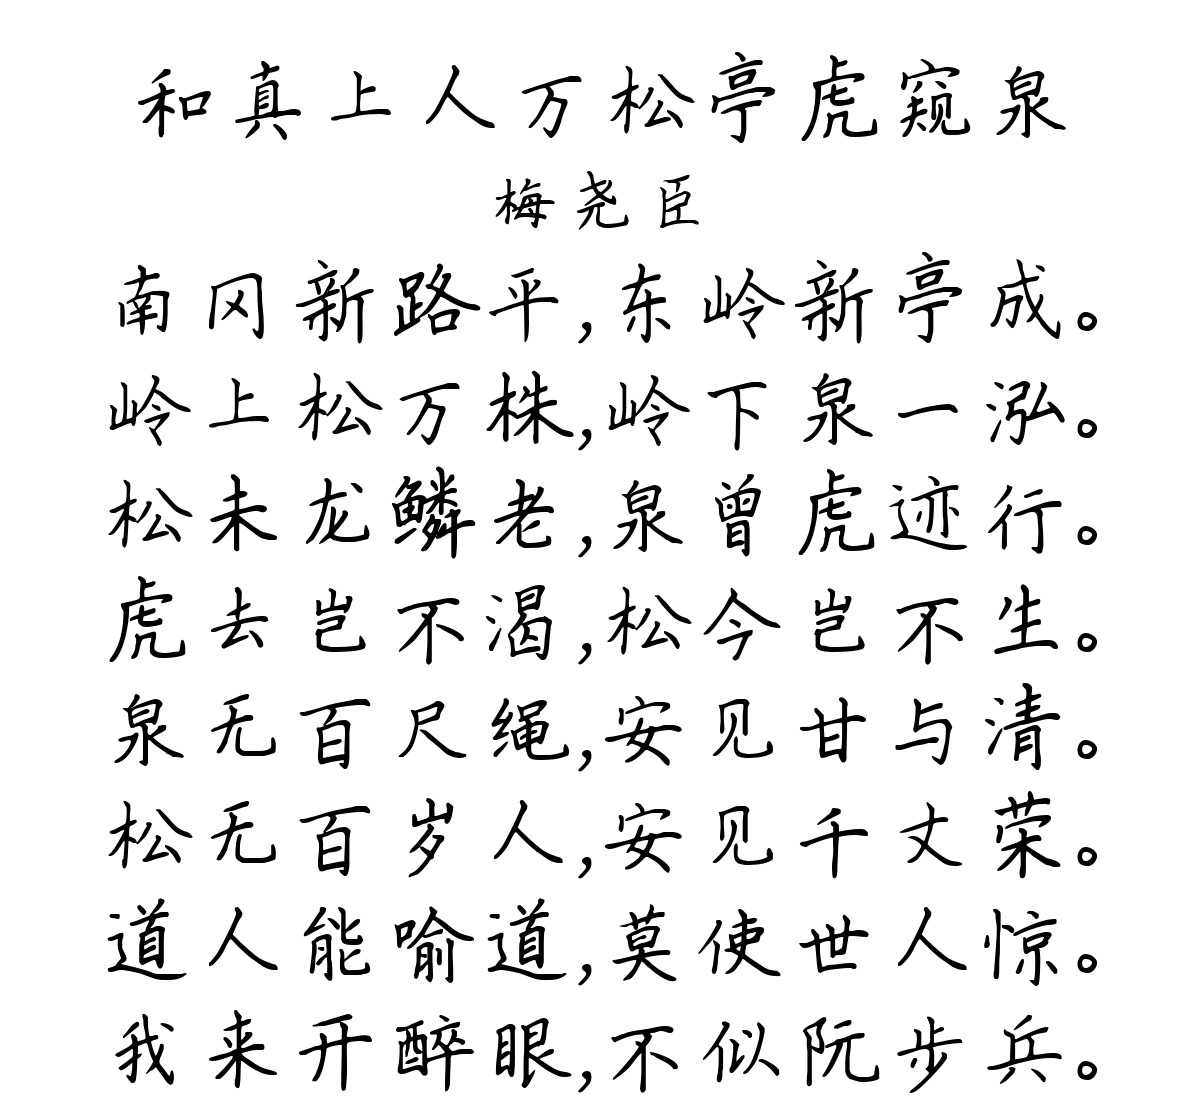 和真上人万松亭虎窥泉
梅尧臣
南冈新路平,东岭新亭成。
岭上松万株,岭下泉一泓。
松未龙鳞老,泉曾虎迹行。
虎去岂不渴,松今岂不生。
泉无百尺绳,安见甘与清。
松无百岁人,安见千丈荣。
道人能喻道,莫使世人惊。
我来开醉眼,不似阮步兵。